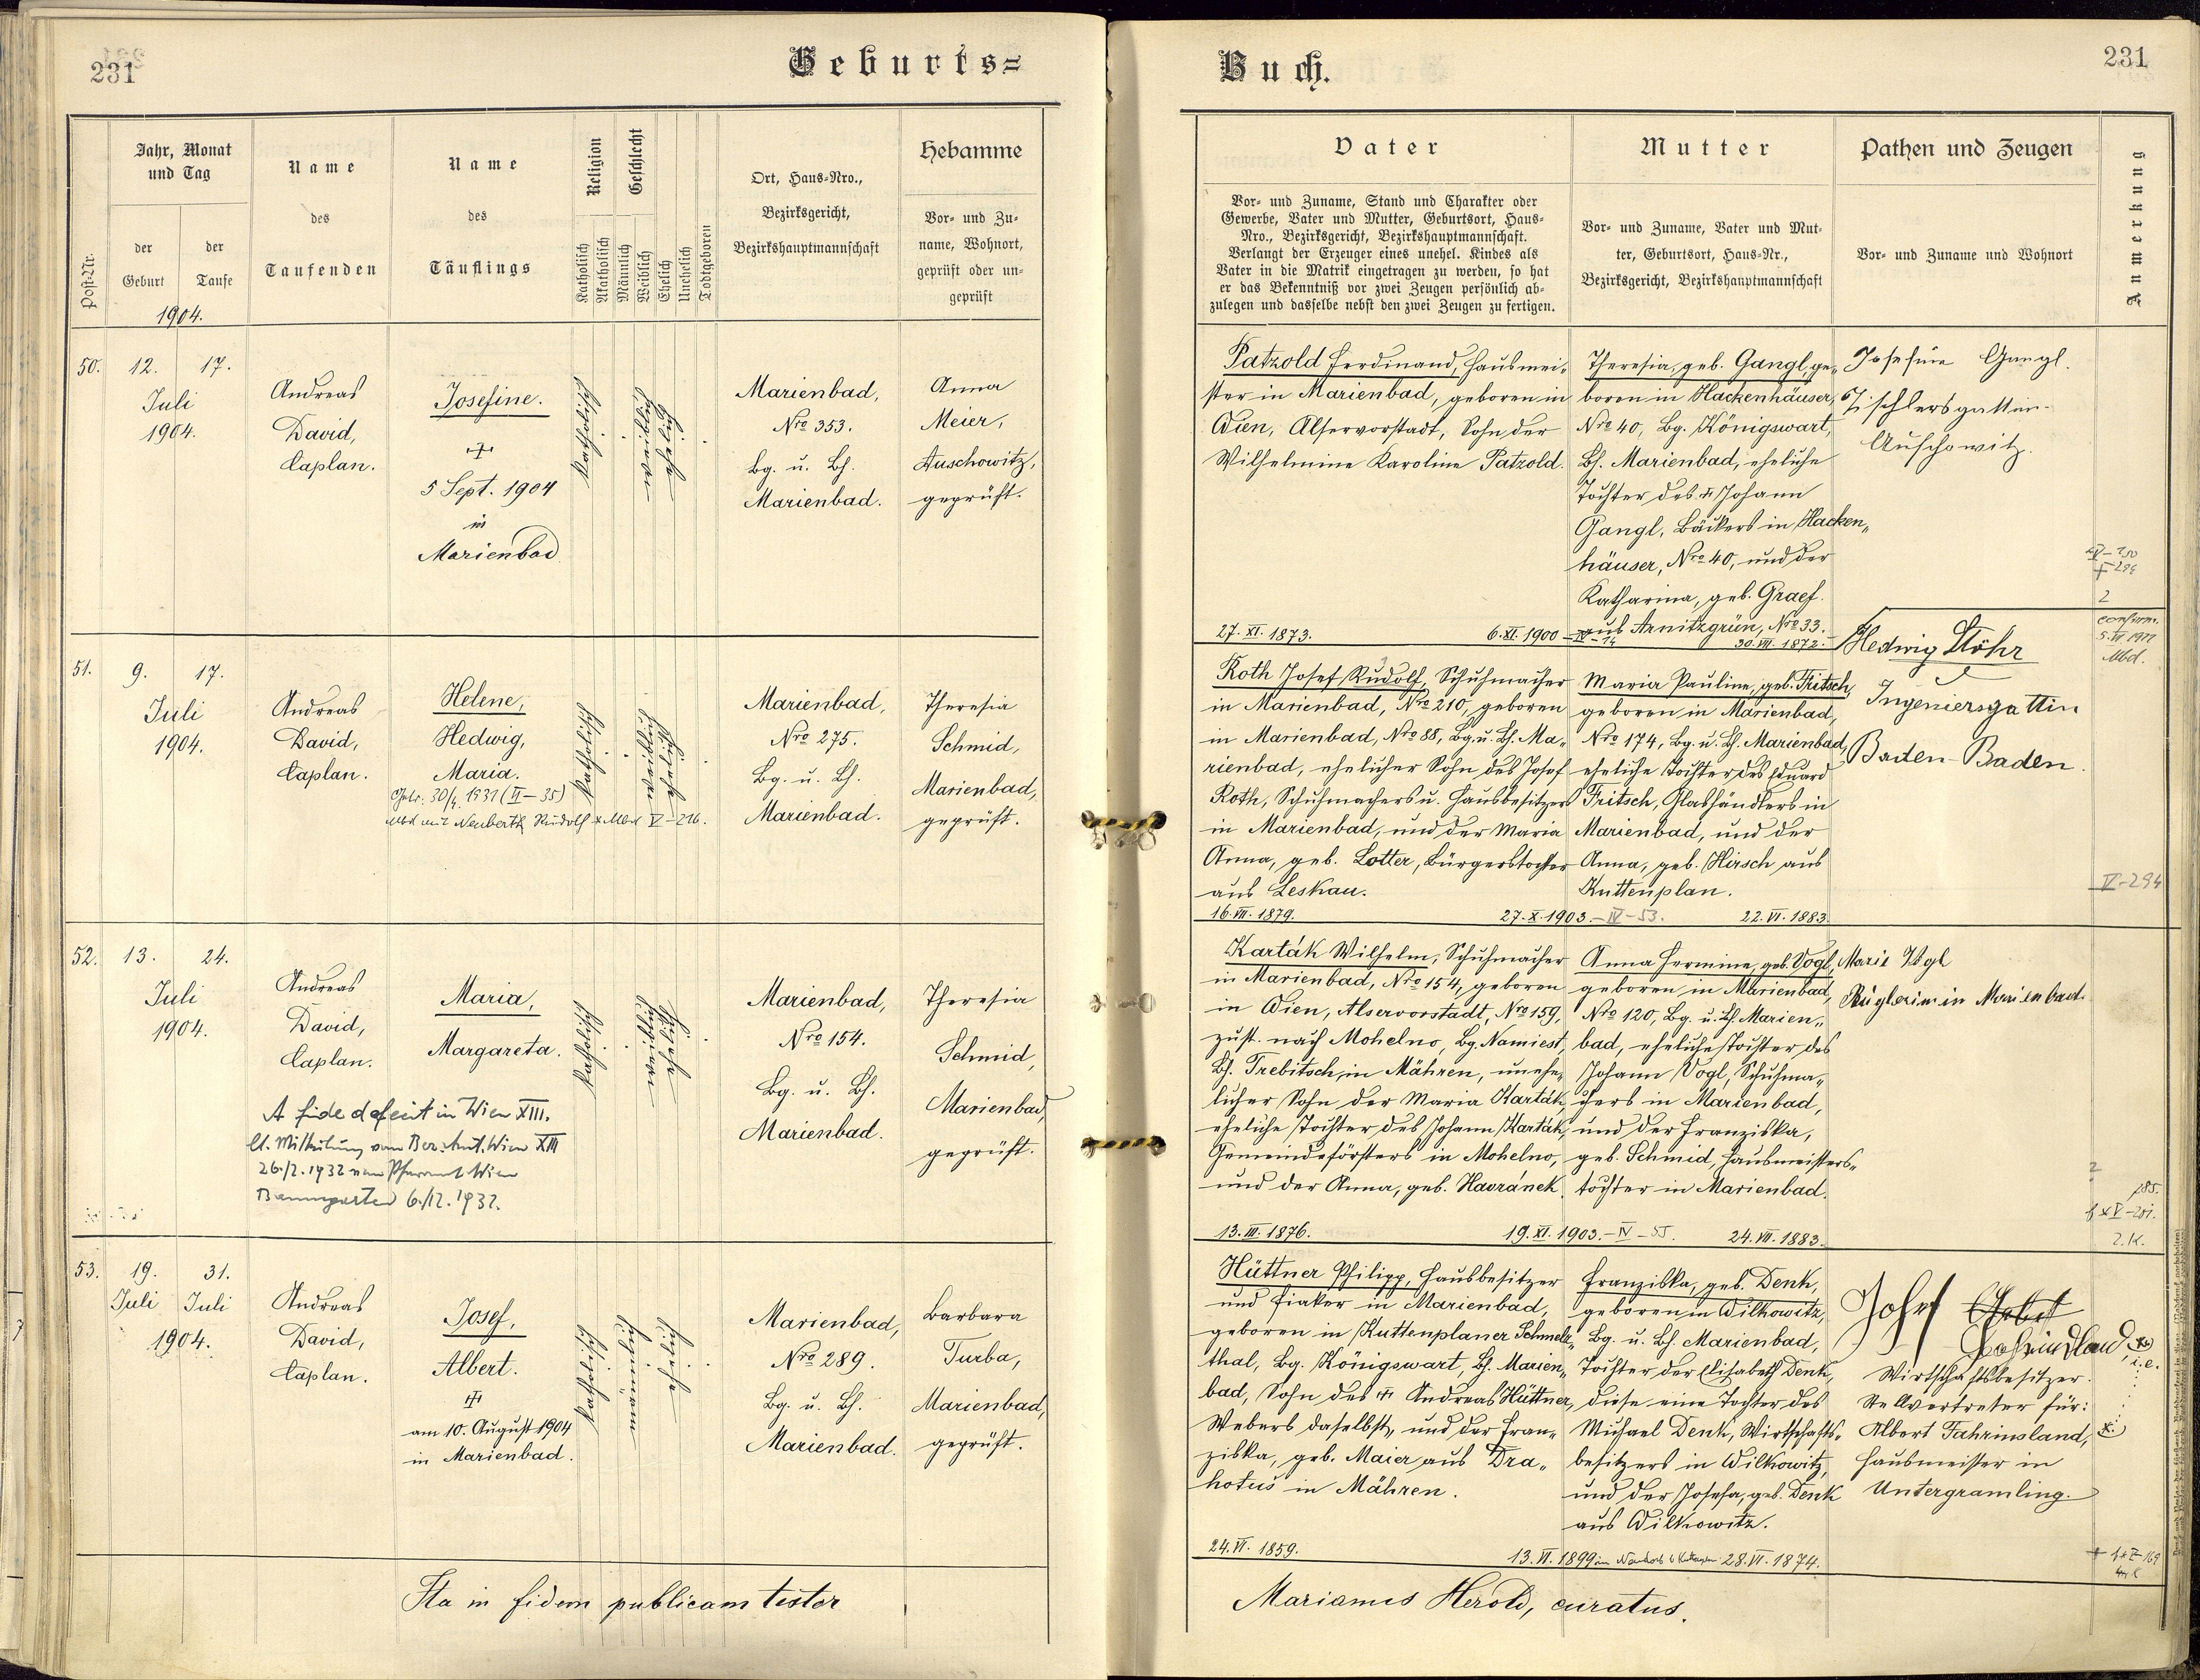 231
Geburts=
Jahr, Monat
und Tag
Name
des
Taufenden
Name
des
Täuflings
Religion
Geschlecht
Ort, Haus=Nro.,
Bezirksgericht,
Bezirkshauptmannschaft
Hebamme
Vor= und Zu=
name, Wohnort,
geprüft oder un=
geprüft
Post=Nr.
der
Geburt
der
Taufe
Katholisch
Akatholisch
Männlich
Weiblich
Ehelich
Unehelich
Todtgeboren
1904.
50.
12. 17.
Juli
1904.
Andreas
David,
Caplan.
Josefine.
5 Sept. 1904
in
Marienbad
katholisch
weiblich
ehelich
Marienbad,
Nro 353.
Bg. u. Bh.
Marienbad.
Anna
Meier,
Auschowitz,
geprüft.
51.
9. 17.
Juli
1904.
Andreas
David,
Caplan.
Helene,
Hedwig,
Maria.
30/4. 1931 (II-35)
Mbd mit Neuberth Rudolf * Mbd V-216.
katholisch
weiblich
ehelich
Marienbad,
Nro 275.
Bg. u. Bh.
Marienbad.
Theresia
Schmid,
Marienbad,
geprüft.
52.
13. 24.
Juli
1904.
Andreas
David,
Caplan.
Maria,
Margareta.
A fide defecit in Wien XIII.
lt. Mitteilung vom Bez. Amt. Wien XIII
26./2. 1932 vom Pfarramt Wien
Baumgarten 6./12. 1932.
katholisch
weiblich
ehelich
Marienbad,
Nro 154.
Bg. u. Bh.
Marienbad.
Theresia
Schmid,
Marienbad,
geprüft.
53.
19. 31.
Juli Juli
1904.
Andreas
David,
Caplan.
Josef,
Albert.
am 10. August 1904
in Marienbad.
katholisch
männlich
ehelich
Marienbad,
Nro 289.
Bg. u. Bh.
Marienbad.
Barbara
Turba,
Marienbad,
geprüft.
Ita in fidem publicam testor
Buch.
231
Vater
Vor= und Zuname, Stand und Charakter oder
Gewerbe, Vater und Mutter, Geburtsort, Haus=
Nro., Bezirksgericht, Bezirkshauptmannschaft.
Verlangt der Erzeuger eines unehel. Kindes als
Vater in die Matrik eingetragen zu werden, so hat
er das Bekenntniß vor zwei Zeugen persönlich ab=
zulegen und dasselbe nebst den zwei Zeugen zu fertigen.
Mutter
Vor= und Zuname, Vater und Mut=
ter, Geburtsort, Haus=Nr.,
Bezirksgericht, Bezirkshauptmannschaft
Pathen und Zeugen
Vor= und Zuname und Wohnort
Anmerkung
Patzold Ferdinand, Hausmei=
ster in Marienbad, geboren in
Wien, Alservorstadt, Sohn der
Wilhelmine Karoline Patzold.
27. XI. 1873.
6. XI. 1900 - IV-14
Theresia, geb. Gangl, ge=
boren in Hackenhäuser,
Nro 40, Bg. Königswart,
Bh. Marienbad, eheliche
Tochter des Johann
Gangl, Bäckers in Hacken=
häuser, Nro 40, und der
Katharina, geb. Graef.
aus Arnitzgrün, Nro 33.
30. VII. 1872.
Josefine Gangl.
Tischlersgattin.
Auschowitz.
2
Roth Josef Rudolf, Schuhmacher
in Marienbad, Nro 210, geboren
in Marienbad, Nro 88, Bg. u. Bh. Ma=
rienbad, ehelicher Sohn des Josef
Roth, Schuhmachers u. Hausbesitzers
in Marienbad, und der Maria
Anna, geb. Lotter, Bürgerstochter
aus Leskau.
16. VII. 1879.
27. X. 1903. - IV-53.
Maria Pauline, geb. Fritsch,
geboren in Marienbad,
Nro 174, Bg. u. Bh. Marienbad,
eheliche Tochter des Eduard
Fritsch, Glashändlers in
Marienbad, und der
Anna, geb. Hirsch aus
Kuttenplan.
22. VI. 1883.
Hedwig Stöhr
Ingeniersgattin
Baden-Baden.
confirm.
Mbd.
V-294
Karták Wilhelm, Schuhmacher
in Marienbad, Nro 154, geboren
in Wien, Alservorstadt, Nro 159,
zust. nach Mohelno, Bg. Namiest,
Bh. Trebitsch, in Mähren, unehe=
licher Sohn der Maria Karták,
eheliche Tochter des Johann Karták,
Gemeindeförsters in Mohelno,
und der Anna, geb. Havránek.
13. III. 1876.
19. XI. 1903. - IV - 55.
Anna Hermine, geb. Vogl,
geboren in Marienbad,
Nro 120, Bg. u. Bh. Marien=
bad, eheliche Tochter des
Johann Vogl, Schuhma=
chers in Marienbad,
und der Franziska,
geb. Schmid, Hausmeisters=
tochter in Marienbad.
24. VII. 1883.
Marie Vogl
Büglerin in Marienbad.
2
Hüttner Philipp, Hausbesitzer
und Fiaker in Marienbad,
geboren in Kuttenplaner Schmelz=
thal, Bg. Königswart, Bh. Marien=
bad, Sohn des Andreas Hüttner,
Webers daselbst, und der Fran=
ziska, geb. Maier aus Dra=
hotus in Mähren.
24. VI. 1859.
13. VI. 1899
Franziska, geb. Denk,
geboren in Wilkowitz,
Bg. u. Bh. Marienbad,
Tochter der Elisabeth Denk,
diese eine Tochter des
Michael Denk, Wirtschafts=
besitzers in Wilkowitz,
und der Josefa, geb. Denk
aus Wilkowitz.
28. VI. 1874.
Josef
Wirtschaftsbesitzer.
Stellvertreter für:
Albert Fahrinsland,
Hausmeister in
Untergramling.
Marianus Herold, curatus.